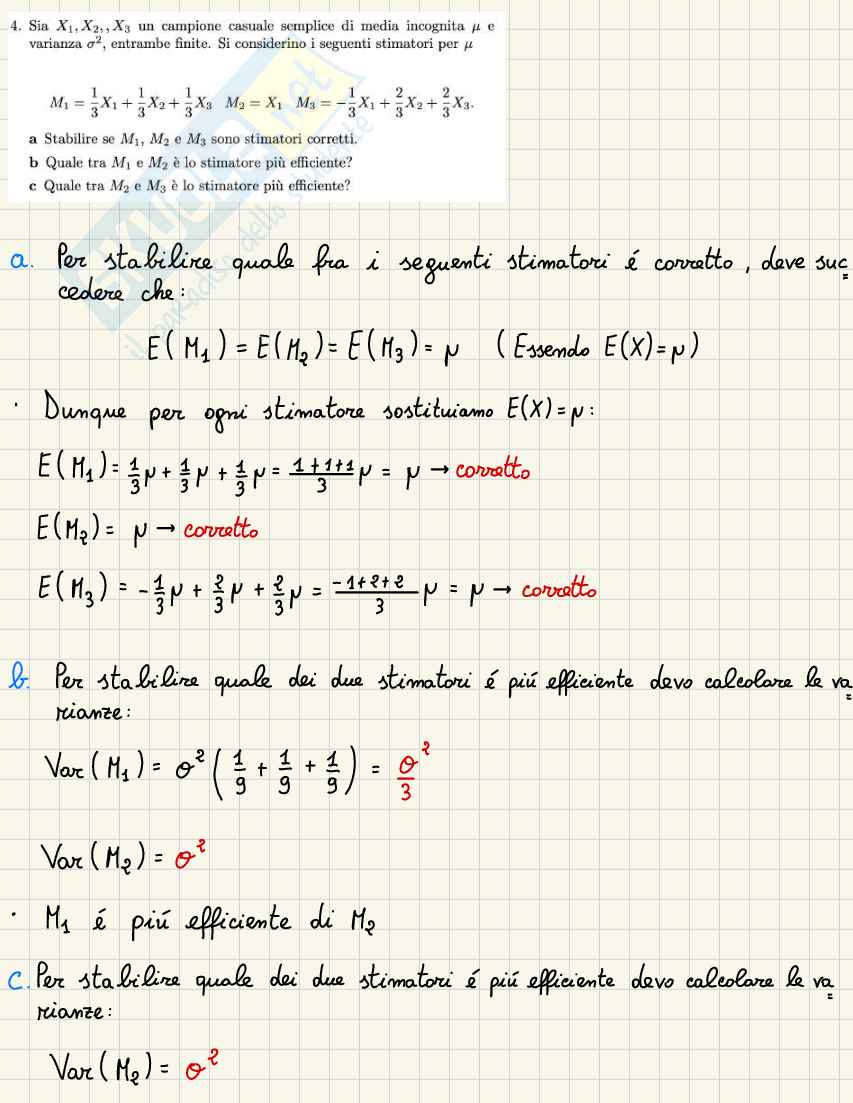 4. Sia X₁, X₂, , X₃ un campione casuale semplice di media incognita μ e
varianza σ², entrambe finite. Si considerino i seguenti stimatori per μ
M₁ = 1/3 X₁ + 1/3 X₂ + 1/3 X₃   M₂ = X₁   M₃ = −1/3 X₁ + 2/3 X₂ + 2/3 X₃.
a Stabilire se M₁, M₂ e M₃ sono stimatori corretti.
b Quale tra M₁ e M₂ è lo stimatore più efficiente?
c Quale tra M₂ e M₃ è lo stimatore più efficiente?
a. Per stabilire quale fra i seguenti stimatori é corretto, deve suc
cedere che:
E(M₁) = E(M₂) = E(M₃) = μ (Essendo E(X)=μ)
· Dunque per ogni stimatore sostituiamo E(X)=μ:
E(M₁) = 1/3 μ + 1/3 μ + 1/3 μ = (1+1+1)/3 μ = μ → corretto
E(M₂) = μ → corretto
E(M₃) = -1/3 μ + 2/3 μ + 2/3 μ = (-1+2+2)/3 μ = μ → corretto
b. Per stabilire quale dei due stimatori é piú efficiente devo calcolare le va
rianze:
Var(M₁) = σ² (1/9 + 1/9 + 1/9) = σ²/3
Var(M₂) = σ²
· M₁ é piú efficiente di M₂
c. Per stabilire quale dei due stimatori é piú efficiente devo calcolare le va
rianze:
Var(M₂) = σ²
SKUOLA.net
il paradiso dello studente